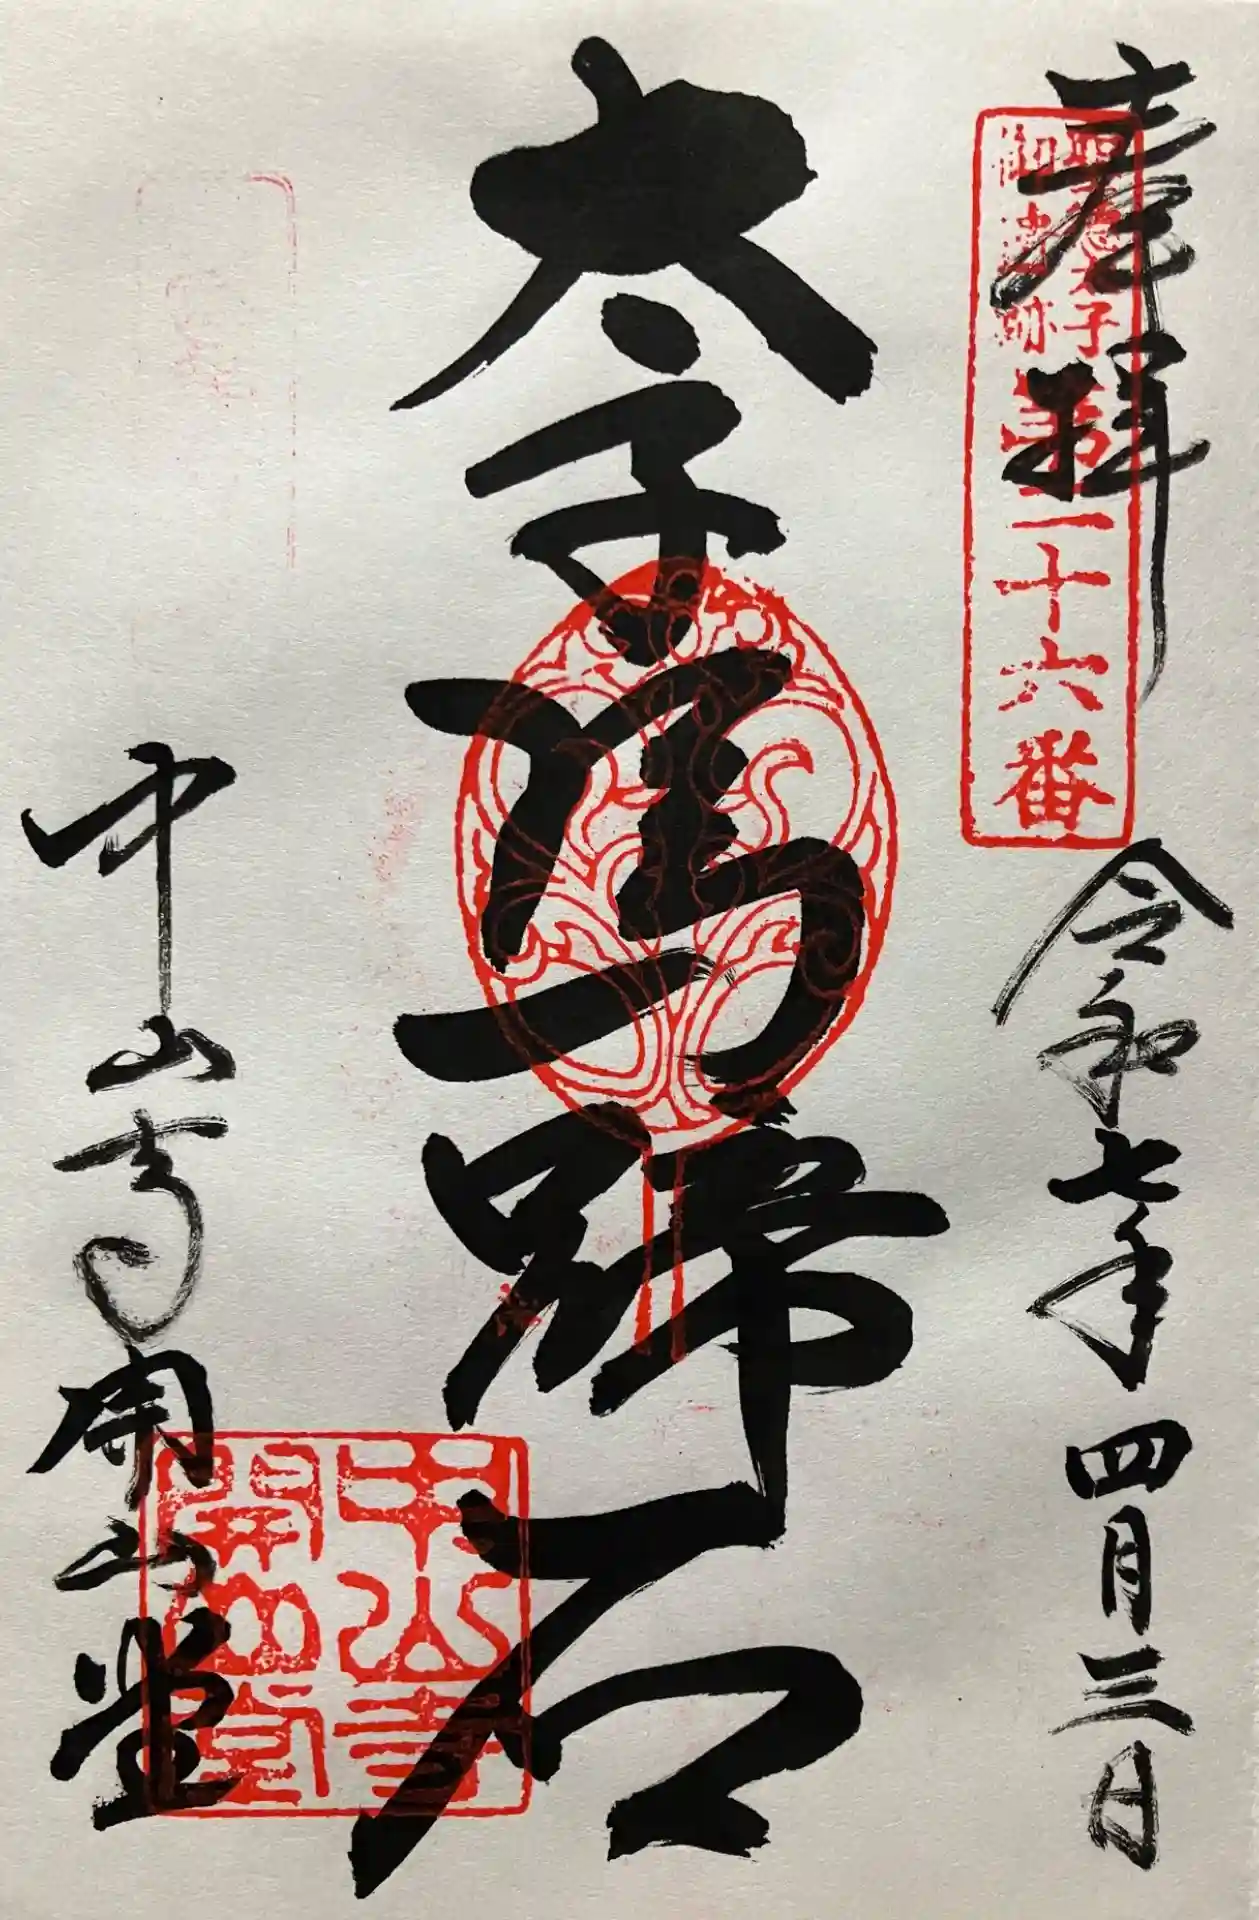 奉拝
令和七年四月三日
聖徳太子
御遺跡
第二十六番
太子馬蹄石
中山寺開山堂
中山寺
開山堂